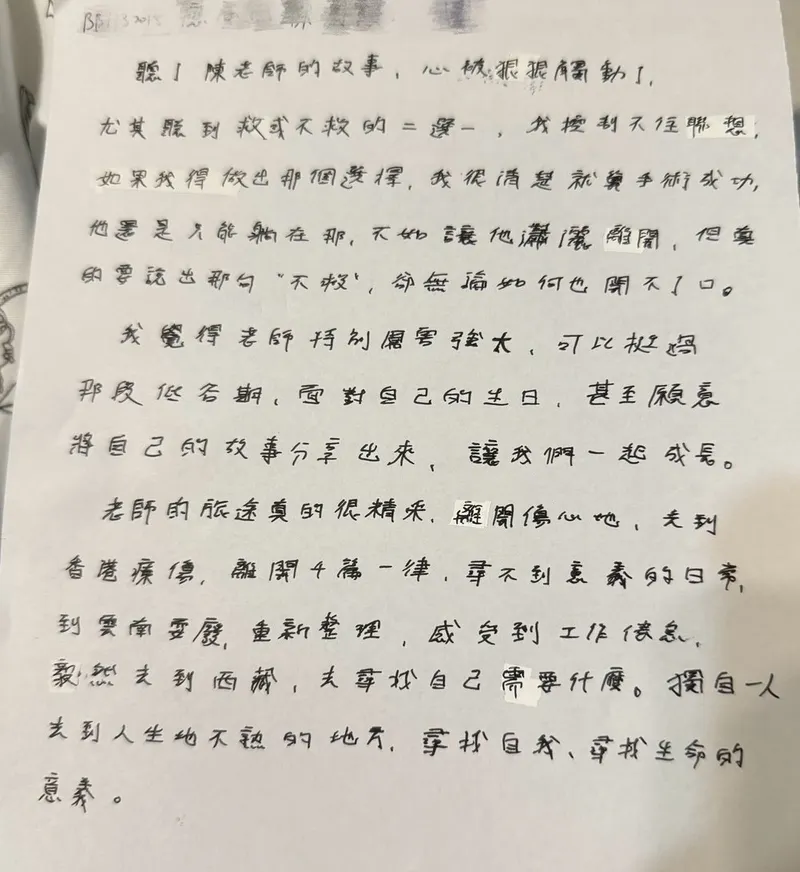 聽了陳老師的故事，心被狠狠觸動了，
尤其聽到救或不救的二選一，我控制不住聯想，
如果我得做出那個選擇，我很清楚就算手術成功，
他還是只能躺在那，不如讓他瀟灑離開，但真
的要說出那句“不救”，卻無論如何也開不了口。
我覺得老師特別厲害強大，可以挺過
那段低谷期，面對自己的生日，甚至願意
將自己的故事分享出來，讓我們一起成長。
老師的旅途真的很精采，離開傷心地，去到
香港療傷，離開4篇一律，尋不到意義的日常，
到雲南耍廢，重新整理，感受到工作倦怠，
毅然去到西藏，去尋找自己需要什麼。獨自一人
去到人生地不熟的地方，尋找自我、尋找生命的
意義。